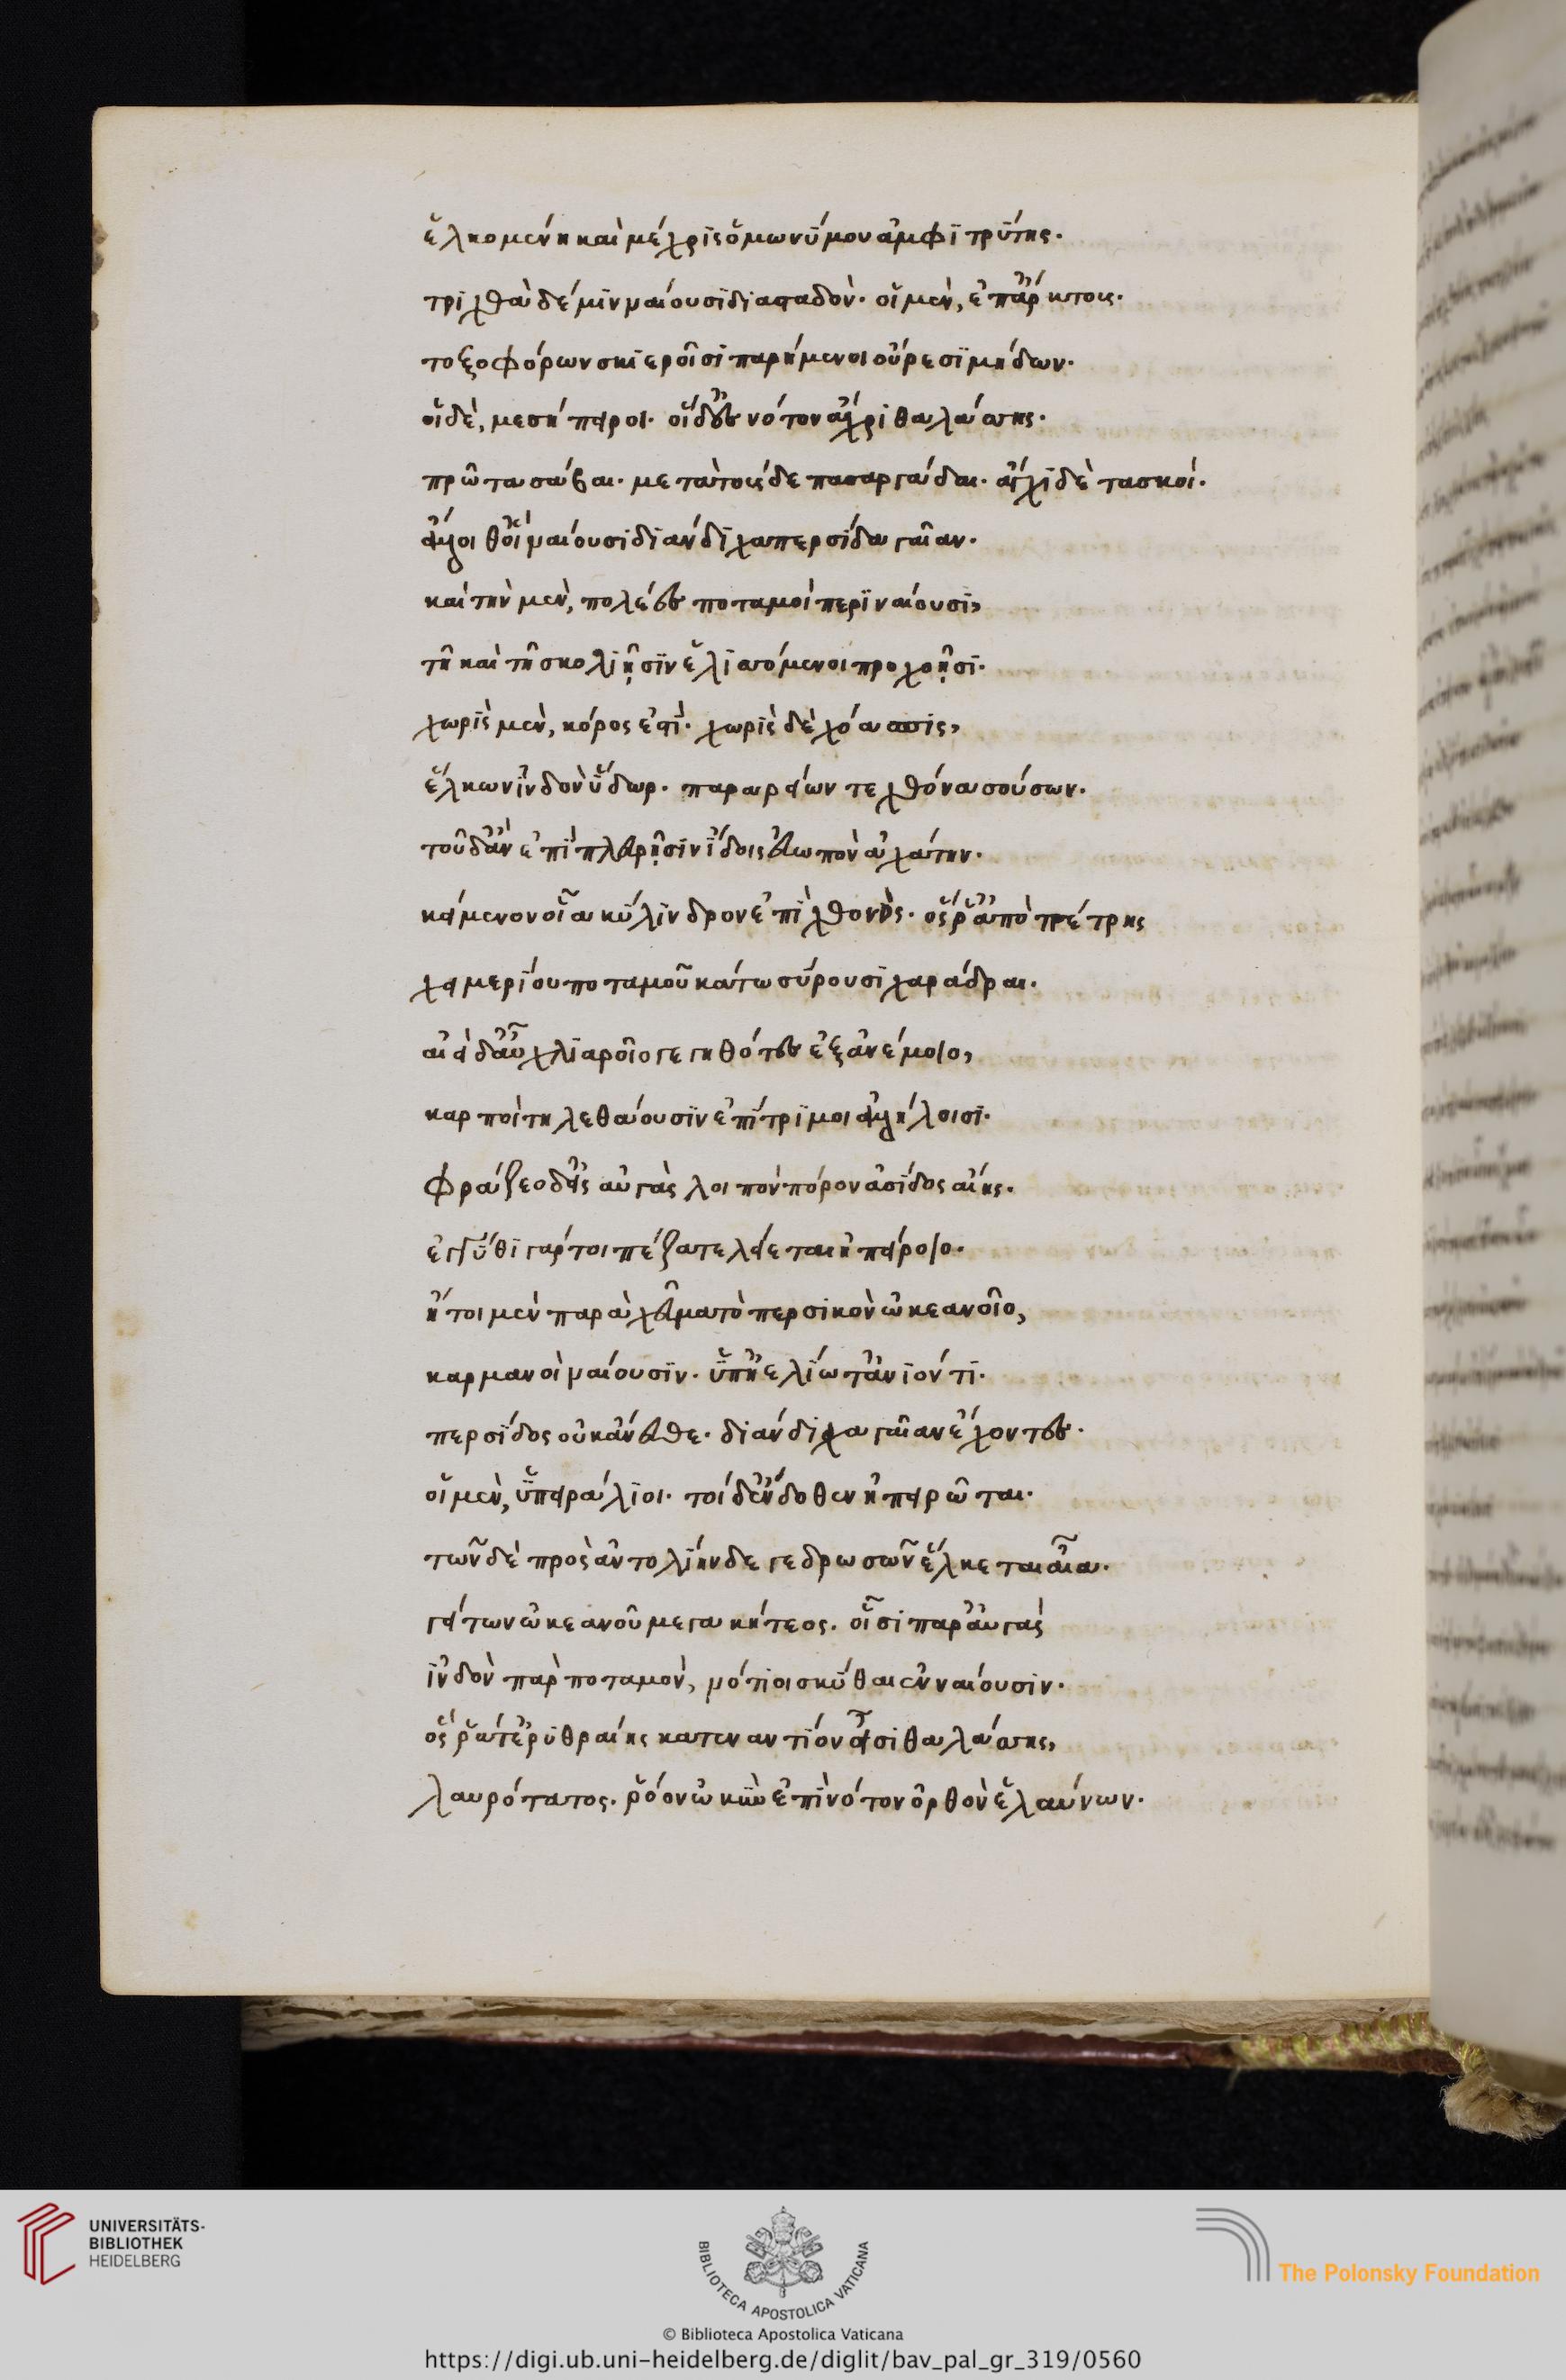 ἑλκομένη καὶ μέχρις ὁμωνύμου ἀμφιτρίτης.
τριχθὰ δέ μιν ναίουσι διασταδόν. οἱ μὲν, ἐπ' ἄρκτοις.
τοξοφόρων σκιεροῖσι παρήμενοι οὔρεσι μήδων.
οἱ δὲ, μεσήπειροι. οἱ δ' εἰς νότον ἄχρι θαλάσσης.
πρῶτα σάβαι. μετὰ τοὺς δὲ πασαργάδαι. ἄγχι δὲ τασκοί.
ἄλλοι θ' οἳ ναίουσι διάνδιχα περσίδα γαῖαν.
καὶ τὴν μὲν, πολέες ποταμοὶ περιναίουσι,
τῇ καὶ τῇ σκολιῇσιν ἑλισσόμενοι προχοῇσι.
χωρὶς μὲν, κόρος ἐστί. χωρὶς δὲ χόασπις,
ἕλκων ἰνδὸν ὕδωρ. παραρείων τε χθόνα σούσων.
τοῦ δ' ἂν ἐπὶ πλευρῇσιν ἴδοις εὐωπὸν ἀχάτην.
κείμενον οἷα κύλινδρον ἐπὶ χθονός. ὅς ῥ' ἀπὸ πέτρης
χειμερίου ποταμοῦ κάτω σύρουσι χαράδραι.
αἰεὶ δ' αὖ χλιαροῖο γεγηθότες ἐξ ἀνέμοιο,
καρποὶ τηλεθάουσιν ἐπίτριμοι ἀλλήλοισι.
φράζεο δ' εἰς αὐγὰς λοιπὸν πόρον ἀσίδος αἴης.
ἐγγύθι γάρ τοι πέζα τελείεται ἠπείροιο.
ἤτοι μὲν παρὰ χεῦμα τὸ περσικὸν ὠκεανοῖο,
καρμανοὶ ναίουσιν. ὑπ' ἠελίῳ τ' ἀνιόντι.
περσίδος οὐκ ἄνευθε. διάνδιχα γαῖαν ἔχοντες.
οἱ μὲν, ὑπειράλιοι. τοὶ δ' ἔνδοθεν ἠπειρῶται.
τῶν δὲ πρὸς ἀντολίην δὲ γεδρωσῶν ἕλκεται αἶα.
γείτων ὠκεανοῦ μεγακήτεος. οἷσι παρ' αὐγὰς
ἰνδὸν πὰρ ποταμὸν, νότιοι σκύθαι ἐνναίουσιν.
ὅς ῥά τ' ἐρυθραίης κατεναντίον εἶσι θαλάσσης,
λαυρότατος. ῥόον ὠκὺν ἐπὶ νότον ὀρθὸν ἐλαύνων.
UNIVERSITÄTS-
BIBLIOTHEK
HEIDELBERG
BIBLIOTECA APOSTOLICA VATICANA
The Polonsky Foundation
© Biblioteca Apostolica Vaticana
https://digi.ub.uni-heidelberg.de/diglit/bav_pal_gr_319/0560